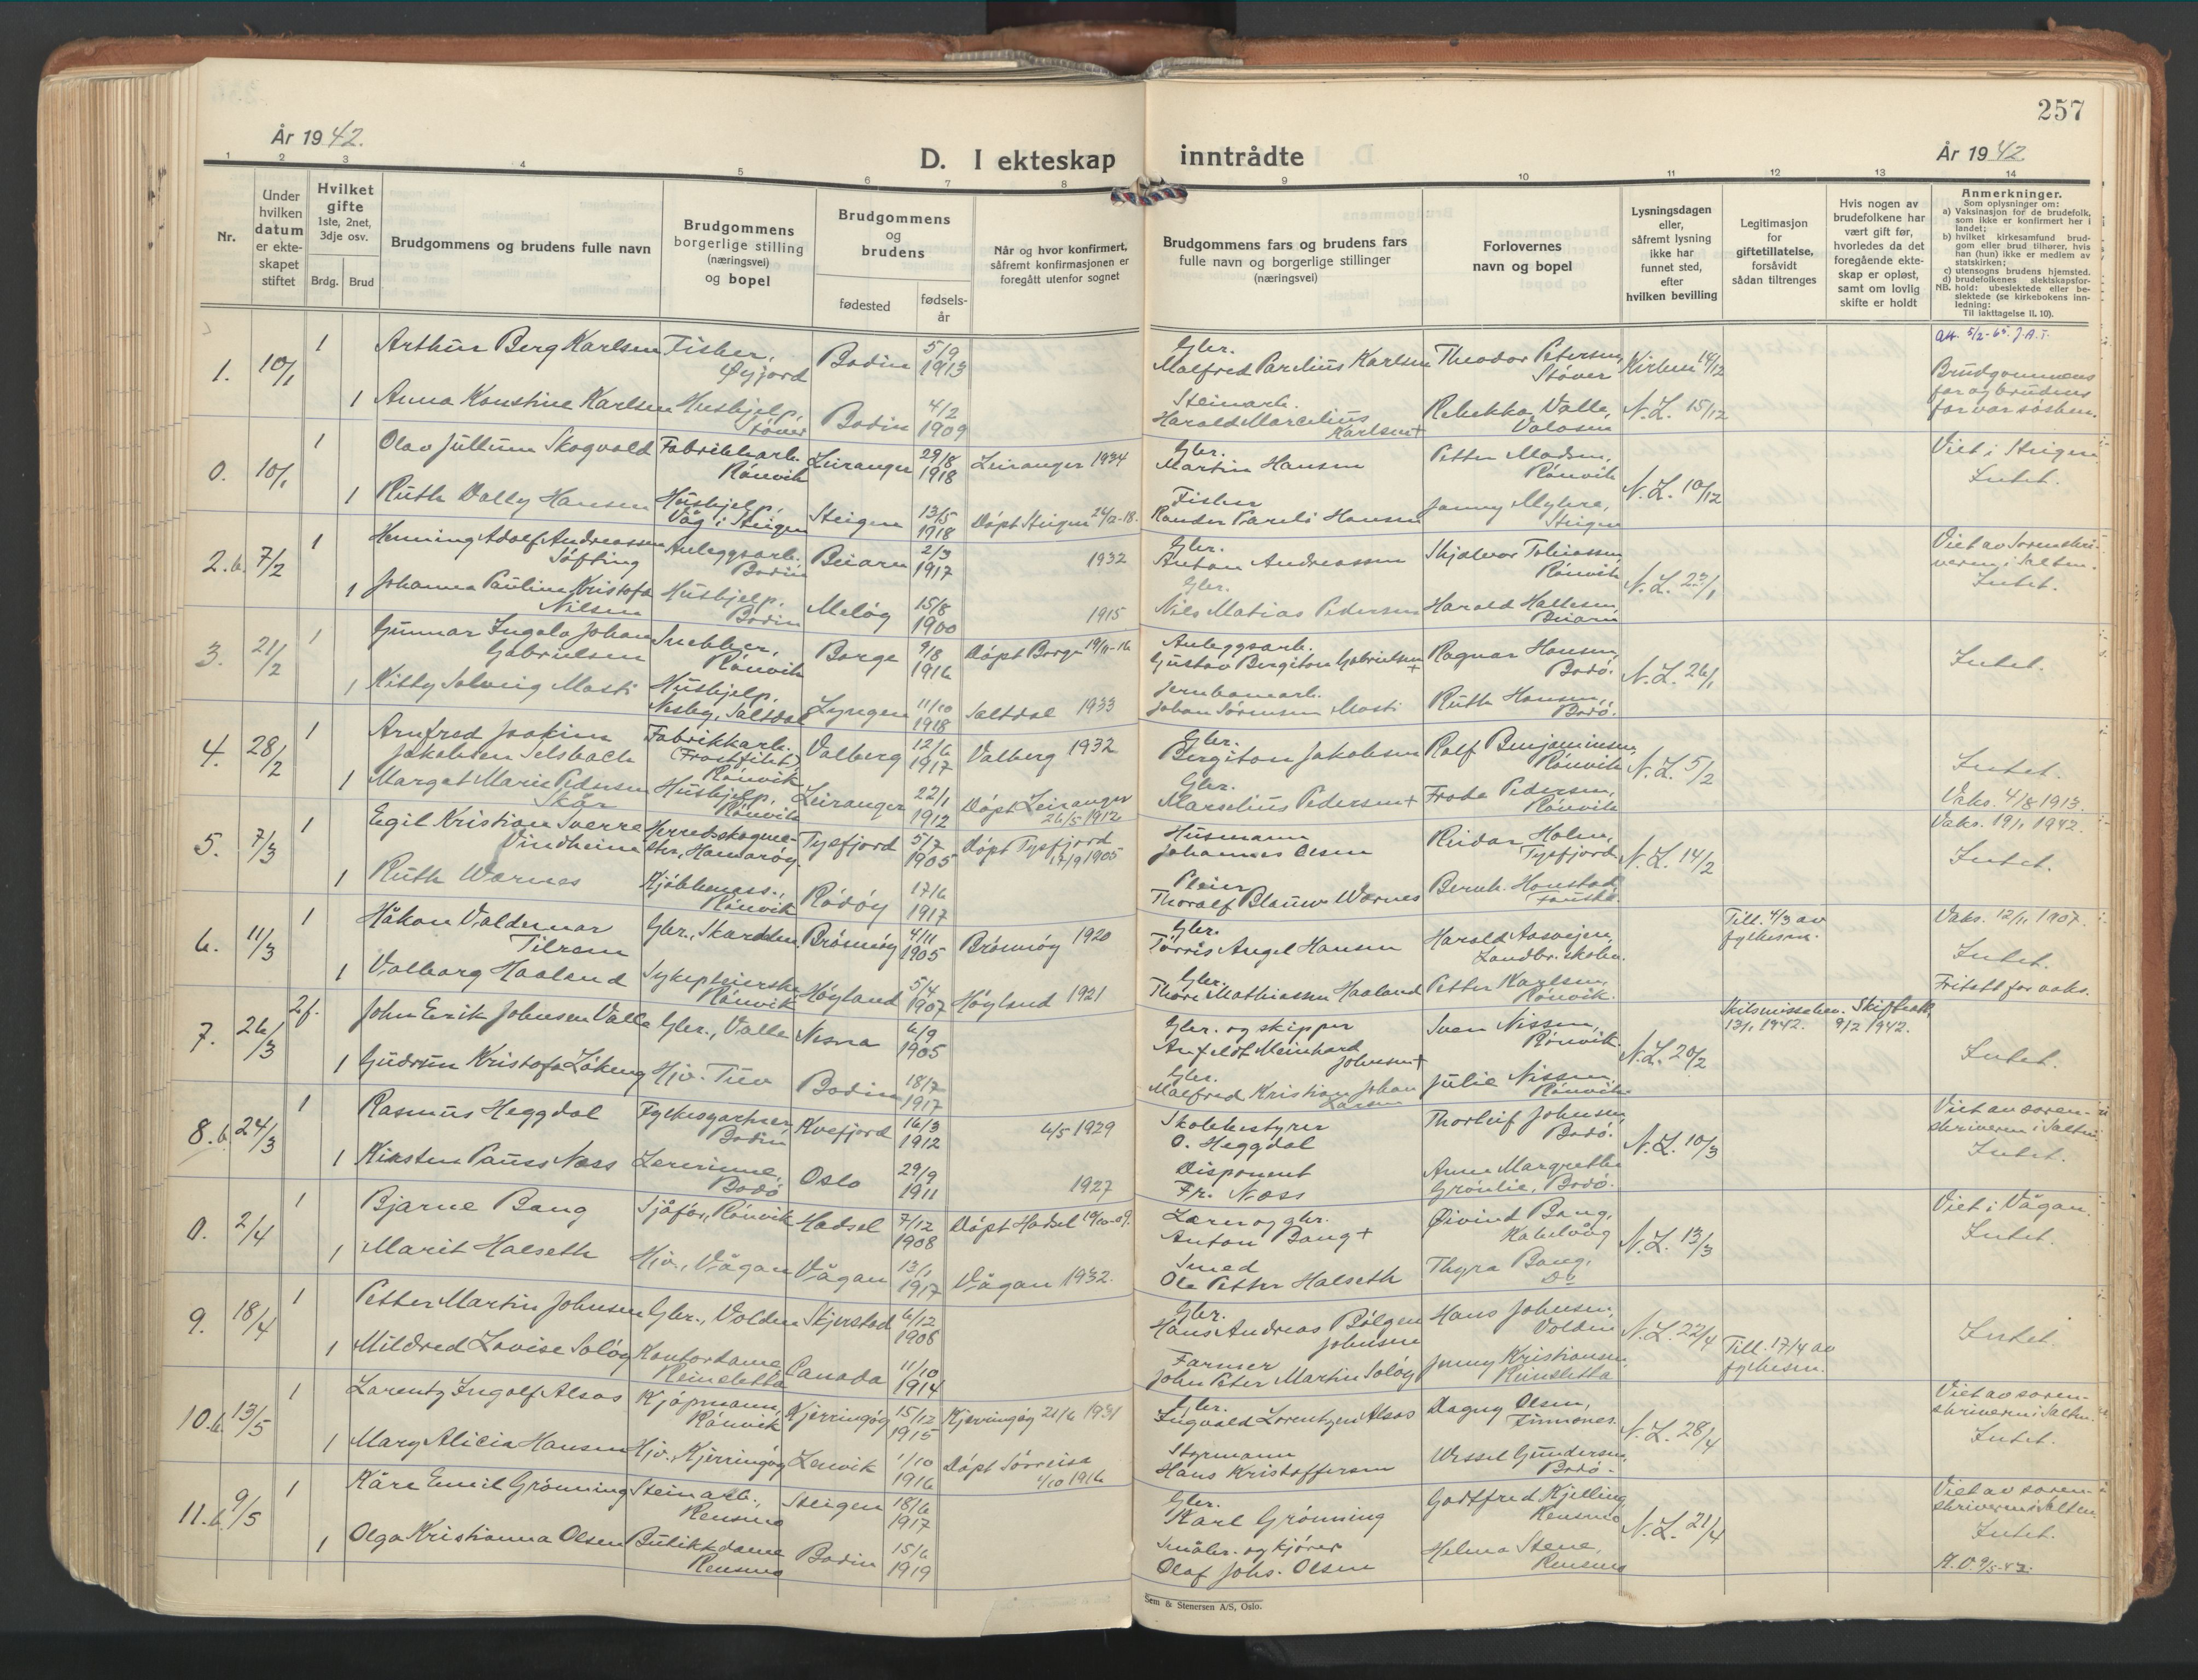 257
År 1942.
D. I ekteskap inntrådte
År 1942
1 2 3 4 5 6 7 8 9 10 11 12 13 14
Nr.
Under hvilken datum er ekteskapet stiftet
Hvilket gifte 1ste, 2net, 3dje osv.
Brdg. Brud
Brudgommens og brudens fulle navn
Brudgommens borgerlige stilling (næringsvei) og bopel
Brudgommens og brudens
fødested
fødselsår
Når og hvor konfirmert, såfremt konfirmasjonen er foregått utenfor sognet
Brudgommens fars og brudens fars fulle navn og borgerlige stillinger (næringsvei)
Forlovernes navn og bopel
Lysningsdagen eller, såfremt lysning ikke har funnet sted, efter hvilken bevilling
Legitimasjon for giftetillatelse, forsåvidt sådan tiltrenges
Hvis nogen av brudefolkene har vært gift før, hvorledes da det foregående ekteskap er opløst, samt om lovlig skifte er holdt
Anmerkninger.
Som oplysninger om:
a) Vaksinasjon for de brudefolk, som ikke er konfirmert her i landet;
b) hvilket kirkesamfund brudgom eller brud tilhører, hvis han (hun) ikke er medlem av statskirken;
c) utensogns brudens hjemsted.
d) brudefolkenes slektskapsforhold: ubeslektede eller beslektede (se kirkebokens innledning:
NB. Til iakttagelse II. 10).
1. 10/1 1 Arthur Berg Karlsen Fisker, Øyjord Bodin 5/9 1913 Gbr. Malfred Parelius Karlsen Theodor Petersen, Støver Kirken 14/12 Att. 5/2-65. J.A.T. Brudgommens far og brudens far var søsken.
1 Anna Konstine Karlsen Hushjelp, Støver Bodin 4/2 1909 Steinarb. Harald Marcelius Karlsen+ Rebekka Valle, Valosen N.L. 15/12
0. 10/1 1 Olav Jullum Skogvold Fabrikkarb. Rønvik Leiranger 29/8 1918 Leiranger 1934 Gbr. Martin Hansen Petter Madsen, Rønvik N.L. 10/12 Viet i Steigen. Intet.
1 Ruth Dally Hansen Hushjelp, Våg i Steigen Steigen 13/5 1918 Døpt Steigen 24/2-18. Fisker Hansen Jenny Myhre, Steigen
2.b. 7/2 1 Henning Adolf Andreassen Søfting Anleggsarb. Bodin Beiarn 2/3 1917 1932 Gbr. Anton Andreassen Skjalvor Tobiassen, Rønvik N.L. 23/1 Viet av Sorenskriveren i Salten. Intet.
1 Johanna Pauline Kristofa Nilsen Hushjelp, Bodin Meløy 15/8 1900 1915 Gbr. Nils Matias Pedersen Harald Hallesen, Beiarn
3. 21/2 1 Gunnar Ingolo Johan Gabrielsen Snekker, Rønvik Borge 9/8 1916 Døpt Borge 19/11-16 Anleggsarb. Gustav Bergiton Gabrielsen+ Ragnar Hansen, Bodø. N.L. 26/1 Intet.
1 Kitty Solveig Masti Hushjelp, Nesby, Saltdal Lyngen 11/10 1918 Saltdal 1933 Jernbanearb. Johan Sørensen Masti Ruth Hansen, Bodø.
4. 28/2 1 Arnfred Joakim Jakobsen Selsbach Fabrikkarb. (Frostfilet) Rønvik Valberg 12/6 1917 Valberg 1932 Gbr. Bergiton Jakobsen Rolf Benjaminsen, Rønvik N.L. 5/2 Intet.
1 Margot Marie Pedersen Skår Hushjelp, Rønvik Leiranger 22/1 1912 Døpt Leiranger 26/5 1912 Gbr. Marselius Pedersen+ Frode Pedersen, Rønvik Vaks. 4/8 1913.
5. 7/3 1 Egil Kristian Sverre Vindheim Herredsskogmester, Hamarøy Tysfjord 5/7 1905 Døpt Tysfjord 17/9 1905 Husmann Johannes Olsen Reidar Holm, Tysfjord N.L. 14/2 Vaks. 19/1 1942. Intet.
1 Ruth Warnes Kjøkkenass., Rønvik Rødøy 17/6 1917 Pleier Thoralf Blauw Warnes Bernh. Honstad, Fauske
6. 11/3 1 Håkon Valdemar Tilrem Gbr., Skardden Brønnøy 4/11 1905 Brønnøy 1920 Gbr. Torris Angel Hansen Harald Aasvejen, Landbr.skolen. Till. 4/3 av fylkesm. Vaks. 12/1 1907. Intet.
1 Valborg Haaland Sykepleierske Rønvik Høyland 5/4 1907 Høyland 1921 Gbr. Thore Mathiassen Haaland Petter Karlsen, Rønvik. Fritatt for vaks.
7. 26/3 2f. John Erik Johnsen Valle Gbr., Valle Nesna 6/9 1905 Gbr. og skipper Anfeldt Meinhart Johnsen+ Sven Nissen, Rønvik. N.L. 20/2 Skilsmissebev. 13/1 1942. Skifteatt. 9/2 1942. Intet.
1 Gudrun Kristofa Løkeng Hjv. Tuv Bodin 18/7 1917 Gbr. Malfred Kristian Johan Larsen Julie Nissen, Rønvik
8.b. 24/3 1 Rasmus Heggdal Fylkesgartner, Bodin Kvefjord 16/3 1912 4/5 1929 Skolebestyrer O. Heggdal Thorleif Johnsen, Bodø. N.L. 10/3 Viet av sorenskriveren i Salten. Intet.
1 Kirsten Pauss Næss Lererinne, Bodø Oslo 29/9 1911 1927 Disponent Fr. Næss Anne Margrethe Grønlie, Bodø.
0. 2/4 1 Bjarne Bang Sjåfør, Rønvik Hadsel 7/12 1908 Døpt Hadsel 10/10-09. Lærer og gbr. Anton Bang+ Øivind Bang, Kabelvåg N.L. 13/3 Viet i Vågan. Intet.
1 Marit Halseth Hjv., Vågan Vågan 13/1 1917 Vågan 1932. Smed Ole Petter Halseth Thyra Bang, Do
9. 18/4 1 Petter Martin Johnsen Gbr., Volden Skjerstad 6/12 1906 Gbr. Hans Andreas Bølgen Johnsen Hans Johnsen, Volden N.L. 22/4 Intet.
1 Mildred Lovise Soløy Kontordame, Reinsletta Canada 11/10 1914 Farmer John Peter Martin Soløy Jenny Kristiansen, Reinsletta Till. 17/4 av fylkesm.
10.b. 13/5 1 Lorentz Ingolf Alsos Kjøpmann, Rønvik Kjerringøy 15/12 1915 Kjerringøy 21/6 1931 Gbr. Ingvald Lorentzen Alsos Dagny Olsen, Finnones. N.L. 28/4 Viet av sorenskriveren i Salten. Intet.
1 Mary Alicia Hansen Hjv., Kjerringøy Lenvik 1/10 1916 Døpt Sørreisa 1/10 1916 Styrmann Hans Kristoffersen Wessel Gundersen, Bodø.
11.b. 9/5 1 Kåre Emil Grønning Steinarb., Rensmo Steigen 18/6 1917 Gbr. Karl Grønning Godtfred Kjelling, Rensmo N.L. 21/4 Viet av sorenskriveren i Salten. Intet.
1 Olga Kristianna Olsen Butikkdame Rensmo Bodin 15/6 1919 Småbr. og kjører Olaf Johs. Olsen Helma Stene, Rensmo
Sem & Stenersen A/S, Oslo.